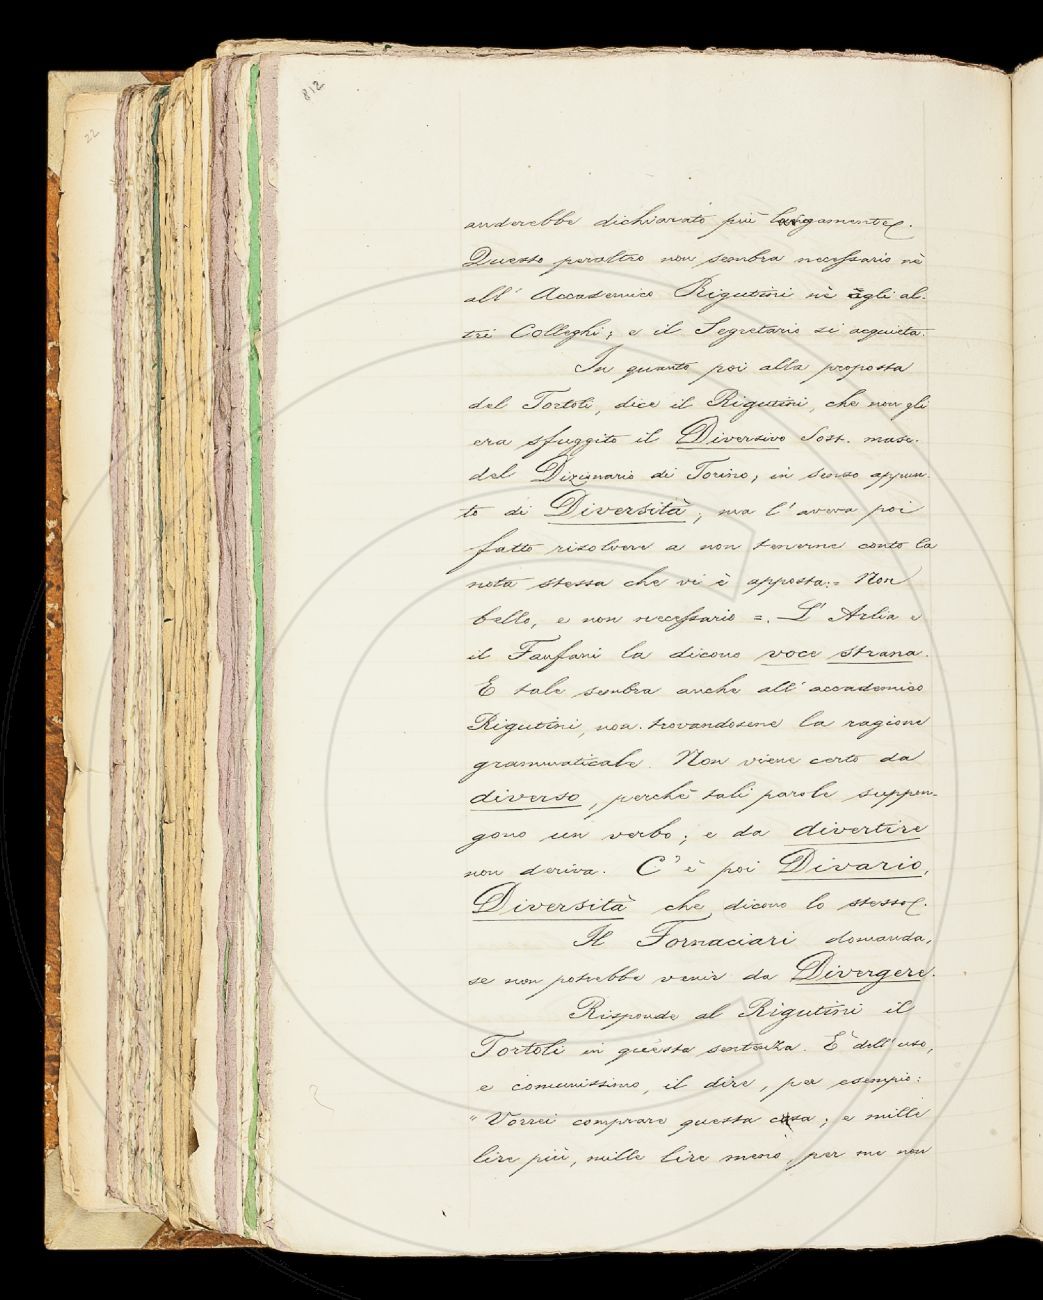 812
22
anderebbe dichiarato più largamente.
Questo peraltro non sembra necessario nè
all' Accademico Rigutini nè agli al-
tri Colleghi; e il Segretario si acquieta.
In quanto poi alla proposta
del Tortoli, dice il Rigutini, che non gli
era sfuggito il Diversivo Sost. masc.
del Dizionario di Torino, in senso appun-
to di Diversità; ma l'aveva poi
fatto risolvere a non tenerne conto la
nota stessa che vi è apposta: = Non
bello, e non necessario =. L' Arlia e
il Fanfani la dicono voce strana.
E tale sembra anche all' accademico
Rigutini, non trovandosene la ragione
grammaticale. Non viene certo da
diverso, perchè tali parole suppon-
gono un verbo; e da divertire
non deriva. C'è poi Divario,
Diversità che dicono lo stesso.
Il Fornaciari domanda,
se non potrebbe venir da Divergere.
Risponde al Rigutini il
Tortoli in questa sentenza. È dell'uso,
e comunissimo, il dire, per esempio:
"Vorrei comprare questa casa; e mille
lire più, mille lire meno, per me non